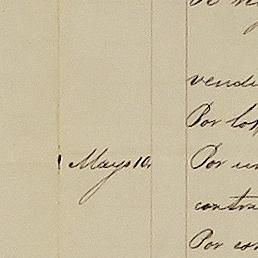 vendi
Por
Mayo 10. Por un
contra
Por con